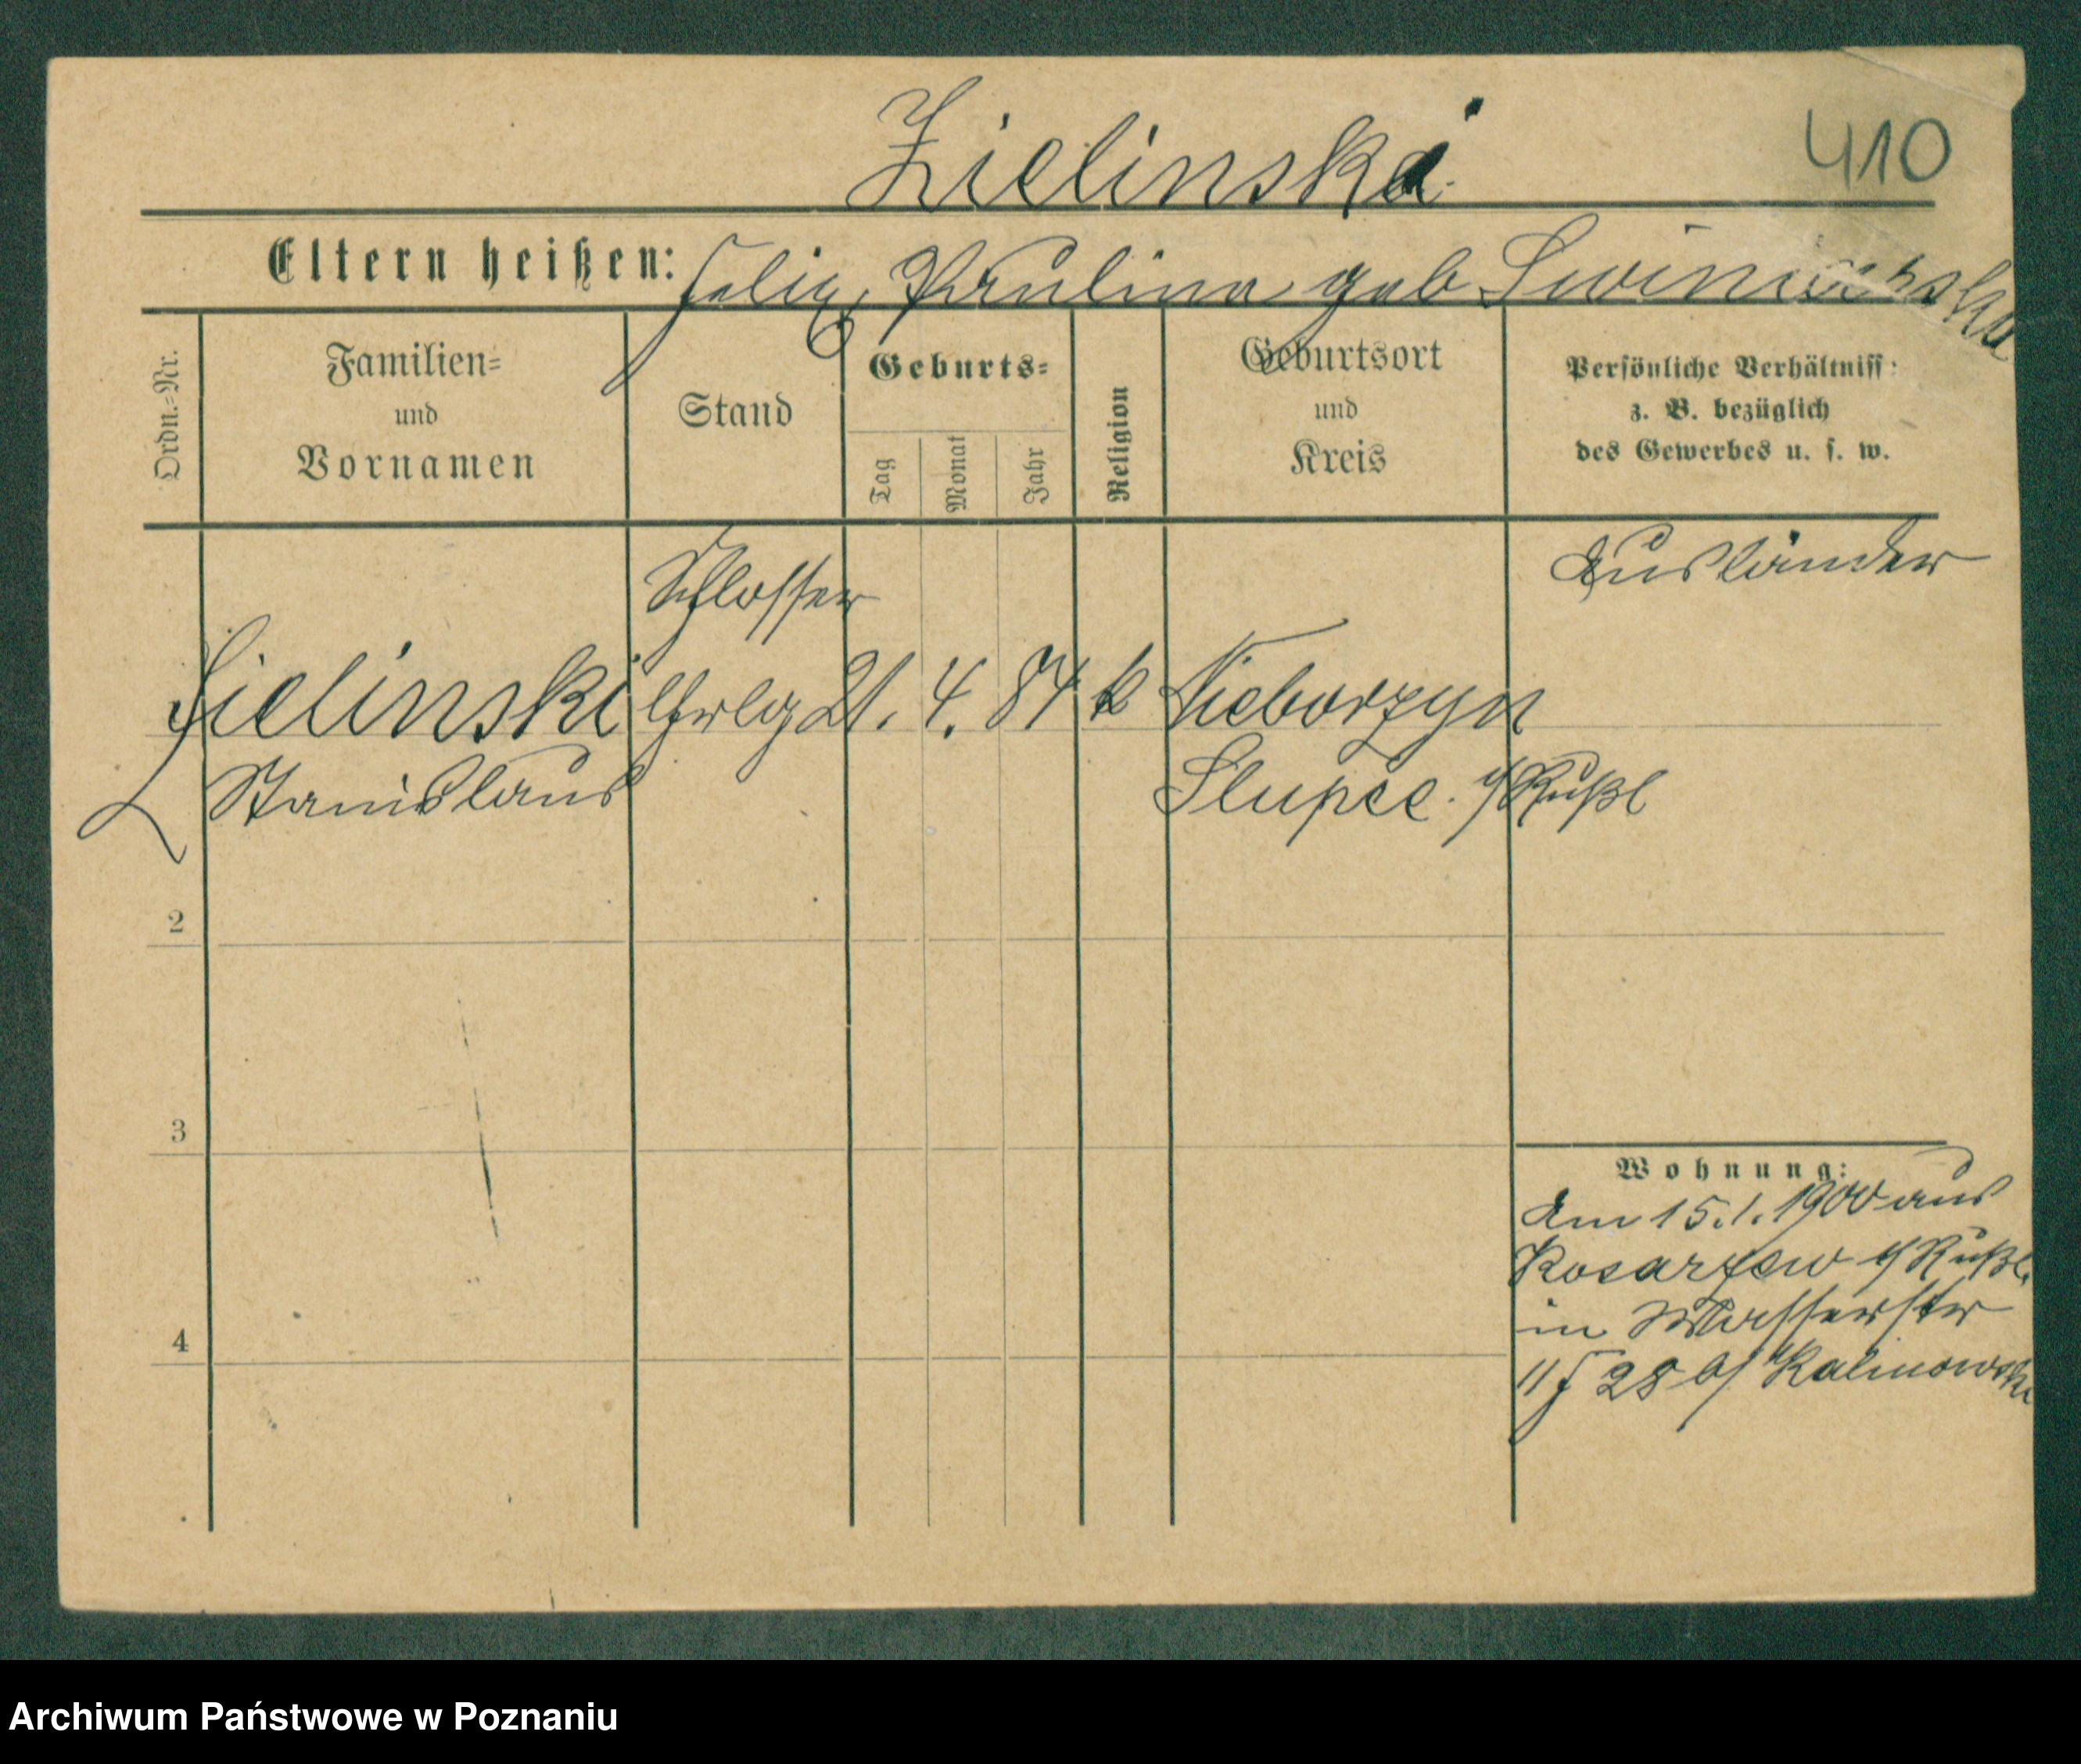 Zielinski
410
Eltern heißen: Felix, Paulina geb Swiniarska
Ordn.=Nr.
Familien=
und
Vornamen
Stand
Geburts=
Tag
Monat
Jahr
Religion
Geburtsort
und
Kreis
Persönliche Verhältniss:
z. B. bezüglich
des Gewerbes u. s. w.
Schlosser
Ausländer
Zielinski Lehrlg 21. 4. 84 k Nieborzyn
Stanislaus Slupce. i/Rußl
2
3
4
Wohnung:
Am 15.1.1900 aus
Kosarzew i/Rußl.
in Wasserstr
28 b/ Kalinowski
Archiwum Państwowe w Poznaniu